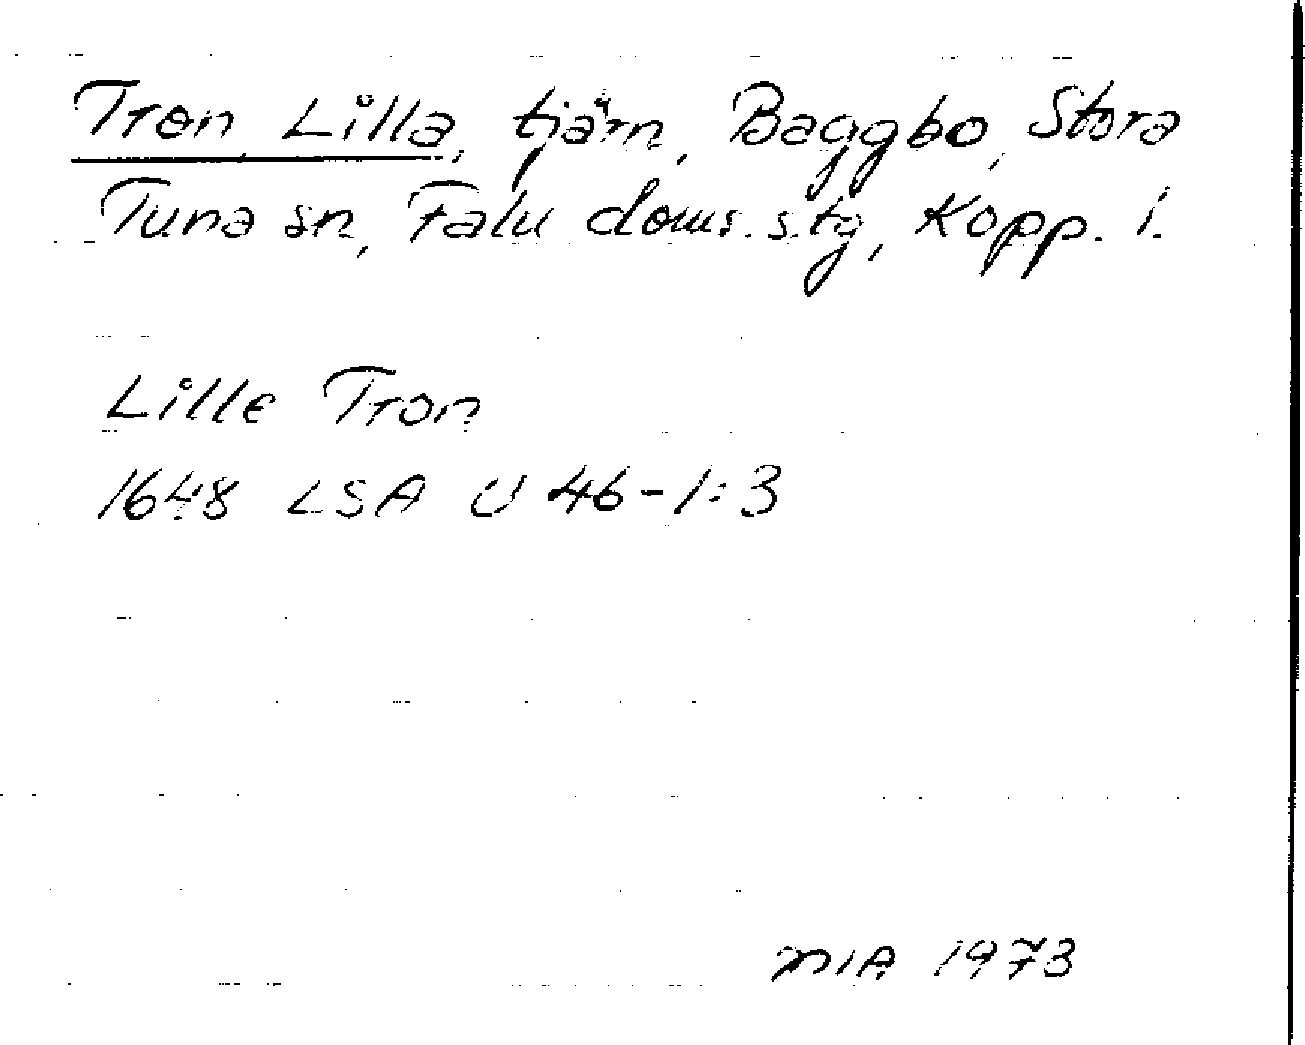 Tron, Lilla, tjärn, Baggbo, Stora
Tuna sn, Falu doms.s.tg, Kopp. l.
Lille Tron
1648 LSA U 46-1:3
MA 1973